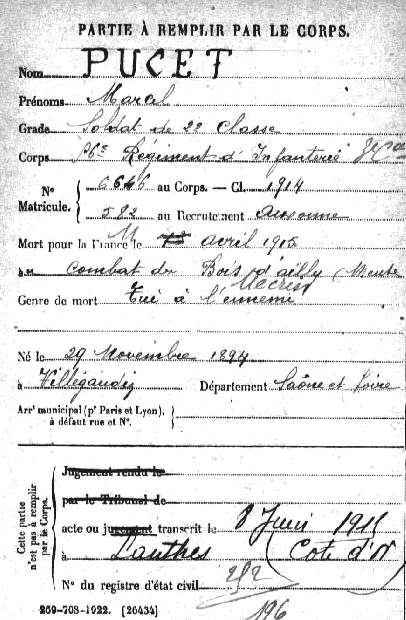 PARTIE À REMPLIR PAR LE CORPS.
Nom PUCET
Prénoms Marcel
Grade Soldat de 2e Classe
Corps Régiment d'Infanterie
N° Matricule. 6646 au Corps. — Cl. 1914
582 au Recrutement Auxonne
Mort pour la France le avril 1915
au combat du Bois d'ailly (Meuse
Genre de mort Tué à l'ennemi
Né le 29 Novembre 1894
à Villegaudin Département Saône et Loire
Arr' municipal (p' Paris et Lyon),
à défaut rue et N°.
Cette partie n'est pas à remplir par le Corps.
Jugement rendu le
par le Tribunal de
acte ou jugement transcrit le 8 Juin 1915
à Lanthes (Cote d'Or
N° du registre d'état civil
269-708-1922. [26434]
196